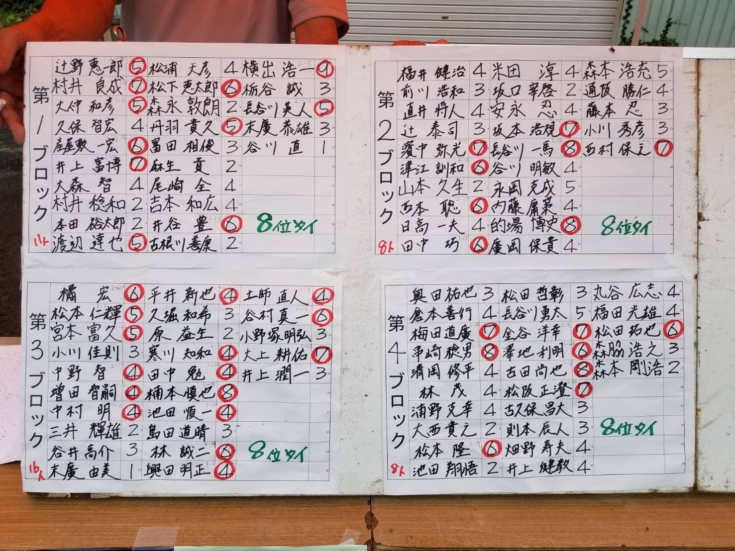 第1ブロック
辻野 恵一郎 5 松浦 天彦 4 横出 浩一 4
村井 良成 7 松下 恵太郎 6 板谷 誠 3
大仲 和彦 5 森永 敦朗 2 長谷川 英人 5
久保 智宏 4 丹羽 貴久 5 末廣 恭雄 3
宏 6 冨田 相俊 3 谷川 直 1
井上 富博 7 麻生 真 2
大森 智 4 尾崎 全 4
村井 稔和 2 吉本 和広 4
本田 裕太郎 2 井谷 豊 6 8位タイ
渡辺 達也 5 古根川 善康 2
11人
第2ブロック
福井 健治 4 米田 淳 4 森本 浩充 5
前川 浩和 3 坂口 啓 2 通阪 勝仁 4
直井 将人 4 安永 忍 4 藤本 忍 3
辻 泰司 3 坂本 浩規 7 小川 秀彦 3
中 弥光 7 長谷川 一馬 8 西村 保之 7
津江 訓和 6 谷川 明敏 4
山本 久生 2 永岡 克成 5
西本 聡 6 内藤 庸策 4
日高 一夫 4 的場 博史 8 8位タイ
田中 巧 6 廣岡 保貴 4
8人
第3ブロック
橘 宏 6 平井 新也 4 土師 直人 4
松本 仁輝 5 久堀 和希 3 谷村 真一 6
宮本 富久 5 原 益生 2 小野塚 明弘 3
小川 佳則 3 寒川 知和 4 大上 耕佑 7
中野 智 4 田中 勉 4 井上 潤一 3
増田 智嗣 4 楠本 慎也 8
中村 明 4 池田 慎一 4
三井 輝雄 2 島田 道晴 3
谷井 高介 3 林 誠二 6 8位タイ
末廣 由美 1 興田 明正 4
16人
第4ブロック
奥田 祐也 3 松田 哲彰 3 丸谷 広志 4
倉本 善行 4 長谷川 勇太 5 福田 光雄 4
梅田 直廣 7 金谷 洋幸 7 松田 拓也 6
串崎 稔男 8 幸地 利明 6 森脇 浩之 3
清岡 修平 4 古田 尚也 8 森本 剛浩 2
林 茂 4 松阪 正澄 7
浦野 克幸 4 古久保 昌大 3
大西 貫之 2 則本 辰人 3 8位タイ
松本 隆 6 畑野 寿夫 4
池田 翔悟 2 井上 健敦 4
8人